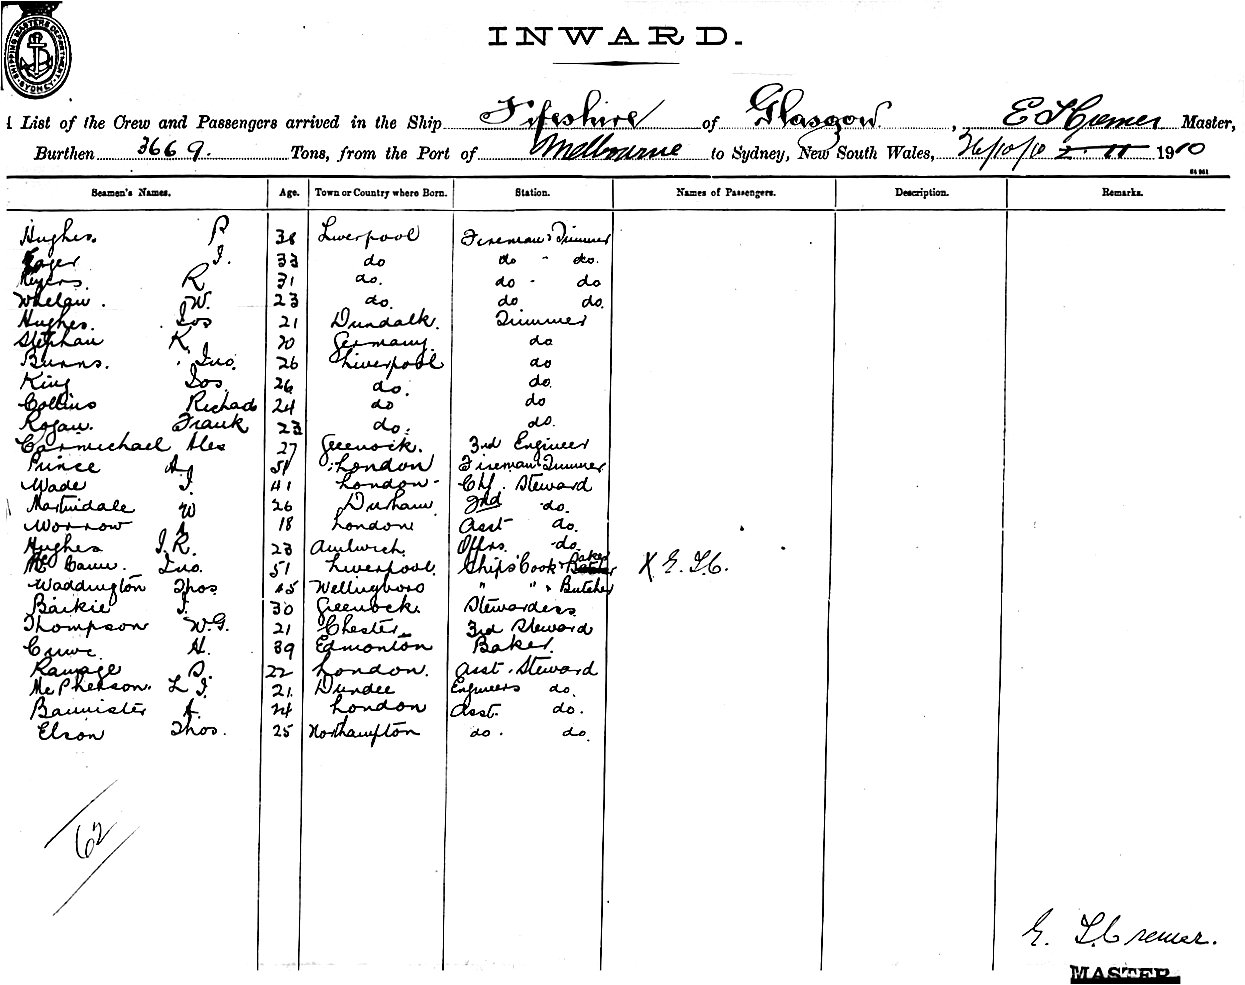 SHIPPING MASTERS DEPARTMENT SYDNEY
INWARD.
List of the Crew and Passengers arrived in the Ship Fifeshire of Glasgow, E T Cremer Master,
Burthen 3669. Tons, from the Port of Melbourne to Sydney, New South Wales, 26/10/10 1910
Seamen's Names. Age. Town or Country where Born. Station. Names of Passengers. Description. Remarks.
Hughes. P 38 Liverpool Fireman & Trimmer
Eager J. 33 do do - do.
Meyers. R 31 do. do - do
Whelan. W. 23 do. do. do.
Hughes. Jos 21 Dundalk. Trimmer
Stephan K. 20 Germany. do
Burns. Jno. 26 Liverpool do
King Jos 26 do. do.
Collins Richad 24 do do
Rogan. Frank 23 do. do.
Carmichael Alex 27 Greenock. 3rd Engineer
Prince A. 51 London Fireman & Trimmer
Wade J. 41 London - Chf. Steward
Martindale W 26 Durham 2nd do.
Worrow A 18 London Asst do.
Hughes J.R. 23 Amlwich. Offrs. do.
Mc Cann. Jno. 51 Liverpool. Ships Cook & Baker X E. T.C.
Waddington Thos 45 Wellingboro " " & Butcher
Baikie J. 30 Greenock. Stewardess
Thompson W.G. 21 Chester 3rd Steward
H. 39 Edmonton Baker.
Ramage D. 22 London. Asst. Steward
McPherson. L J. 21. Dundee Engineers do.
Bannister A. 24 London Asst. do.
Elson Thos. 25 Northampton do. do.
62
E. T. Cremer.
MASTER